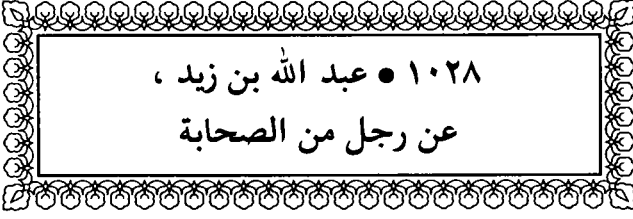 ١٠٢٨ • عبد الله بن زيد ،
عن رجل من الصحابة